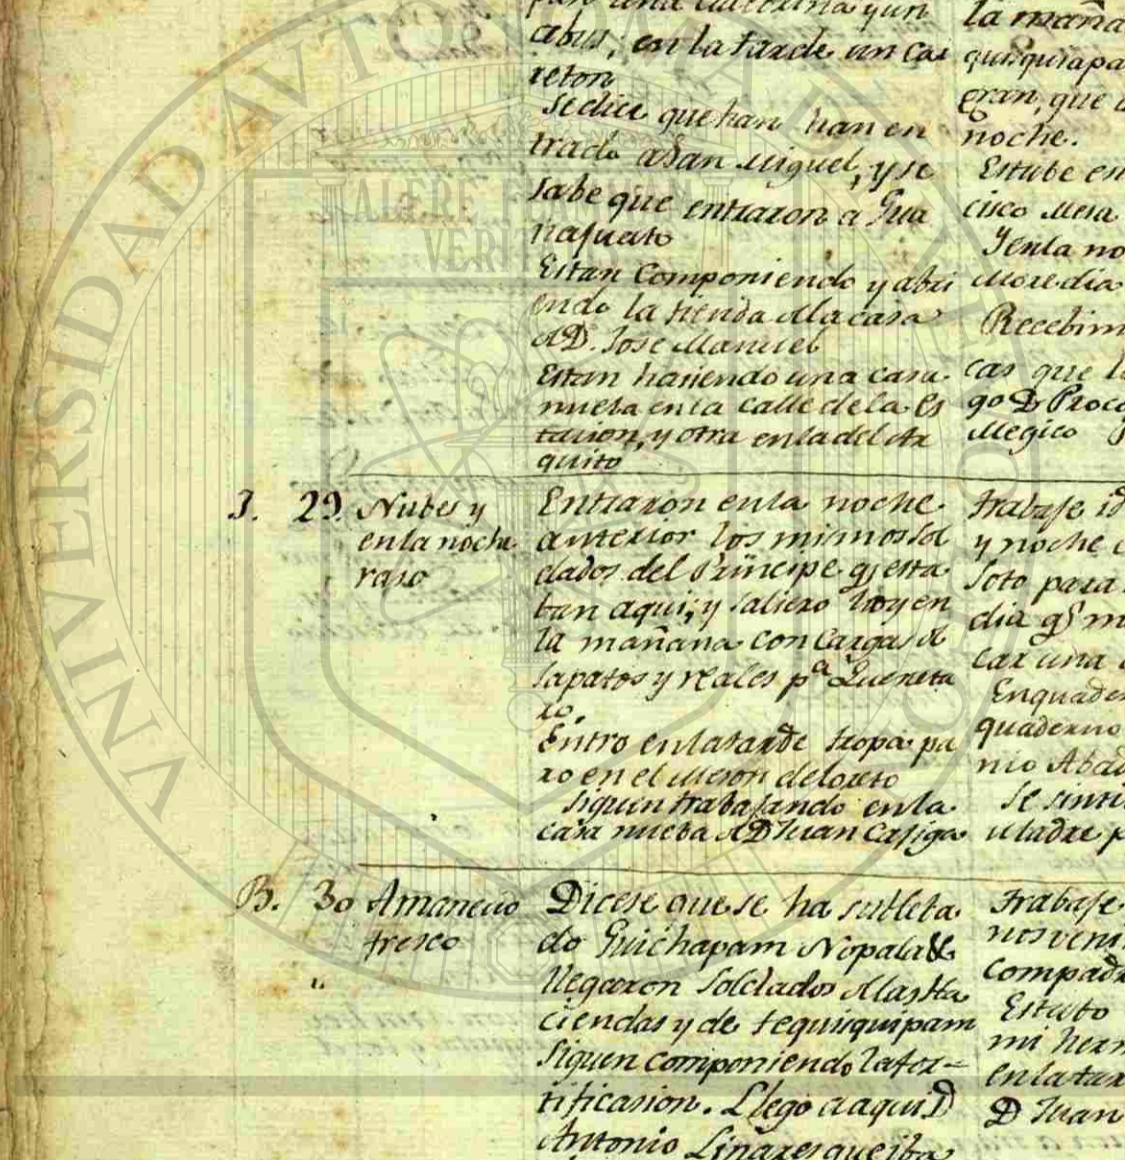 una
abus; en la tarde un ca
reton
Se dice que han han en
trado a San Miguel, y se
sabe que entraron a Gua
najuato
Estan Componiendo y abri
endo la tienda de la casa
de D. Jose Manuel
Estan haciendo una casa
nueba en la calle de la Es
tacion, y otra en la del Ar
quito
3. 29. Nubes y
en la noche
raso
Entraron en la noche
anterior los mimos sol
dados del Principe qe esta
ban aqui; y saliero hoy en
la mañana con Cargas de
sapatos y reales pa Quereta
ro.
Entro en la tarde tropa pa
ro en el Meson de loreto
Siguen trabajando en la
casa nueba de D Juan Casiga
B. 30 Amanecio
fresco
"
Dicese que se ha subleba
do Guichapam Nopala &
llegaron Soldados de las Ha
ciendas y de tequisquipam
Siguen componiendo la for-
tificasion. Llego a aqui D
Antonio Linares que iba
la maña
quisquiapa
eran, que
noche.
Estube en
cisco Mesa
Y en la no
More dia
Recebim
cas que l
go D Proc
Megico
trabaje id
y noche
Soto para
dia qe m
car una
Enquader
quaderno
nio Abad
Se sinti
Madre p
Trabaje
nos veni
Compadr
Estubo
mi herm
en la tar
D Juan
UNIVERSIDAD AUTONOMA DE NUEVO LEON
ALERE FLAMMAM
VERITATIS